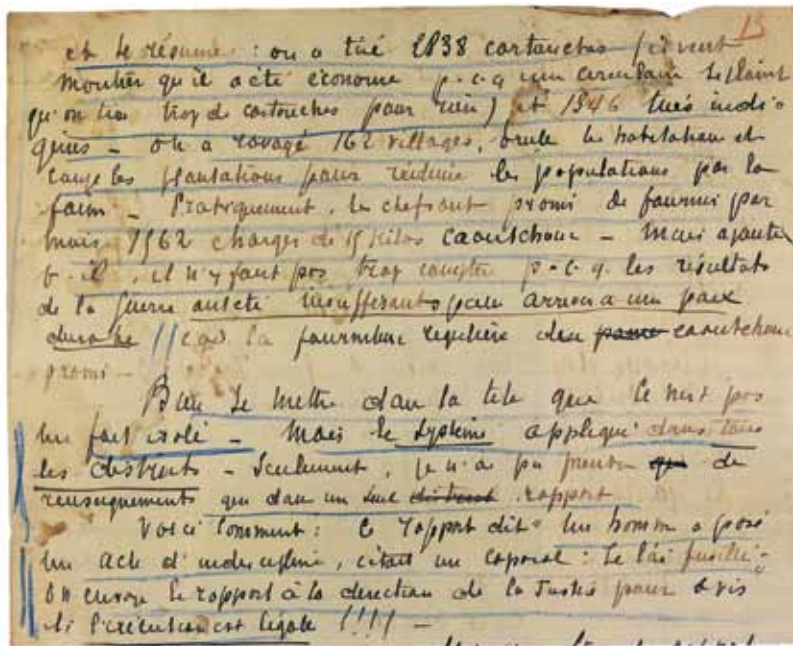 13
et le résume : on a tué 2838 cartouches (devent
montrer qu'il a été économe p.c.q une circulaire se plaint
qu'on tire trop de cartouches pour rien) et 1346 tués indi-
gènes - on a ravagé 162 villages, brulé les habitations et
coupé les plantations pour réduire les populations par la
faim - Pratiquement, les chefs ont promi de fournir par
mois 1562 charges de 15 kilos caoutchouc - Mais ajoute
t-il, il n'y faut pas trop compter p-c-q. les résultats
de la guerre ont été insuffisants pour arriver a une paix
durable !! càd la fourniture régulière du caoutchouc
promi -
Bien se mettre dans la tete que ce n'est pas
un fait isolé - Mais le système appliqué dans tous
les districts - Seulement, je n'ai pu prendre de
renseignements que dans un seul rapport
Voici comment : Ce rapport dit "Un homme a posé
un acte d'indiscipline, c'était un caporal : Je l'ai fusillé"
On envoye le rapport à la direction de la Justice pour avis
si l'exécution est légale !!!! -